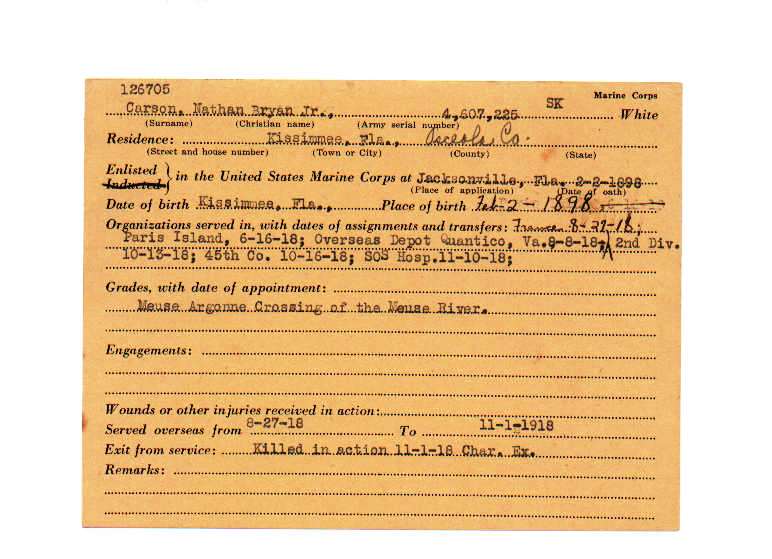 126705 SK Marine Corps
Carson, Nathan Bryan Jr., 4,607,225 White
(Surname) (Christian name) (Army serial number)
Residence: Kissimmee, Fla., Osceola Co.
(Street and house number) (Town or City) (County) (State)
Enlisted
Inducted } in the United States Marine Corps at Jacksonville, Fla. 2-2-1898
(Place of application) (Date of oath)
Date of birth Kissimmee, Fla., Place of birth Feb-2-1898
Organizations served in, with dates of assignments and transfers: France 8-27-18;
Paris Island, 6-16-18; Overseas Depot Quantico, Va.8-8-18; 2nd Div.
10-13-18; 45th Co. 10-16-18; SOS Hosp.11-10-18;
Grades, with date of appointment:
Meuse Argonne Crossing of the Meuse River.
Engagements:
Wounds or other injuries received in action:
Served overseas from 8-27-18 To 11-1-1918
Exit from service: Killed in action 11-1-18 Char. Ex.
Remarks: